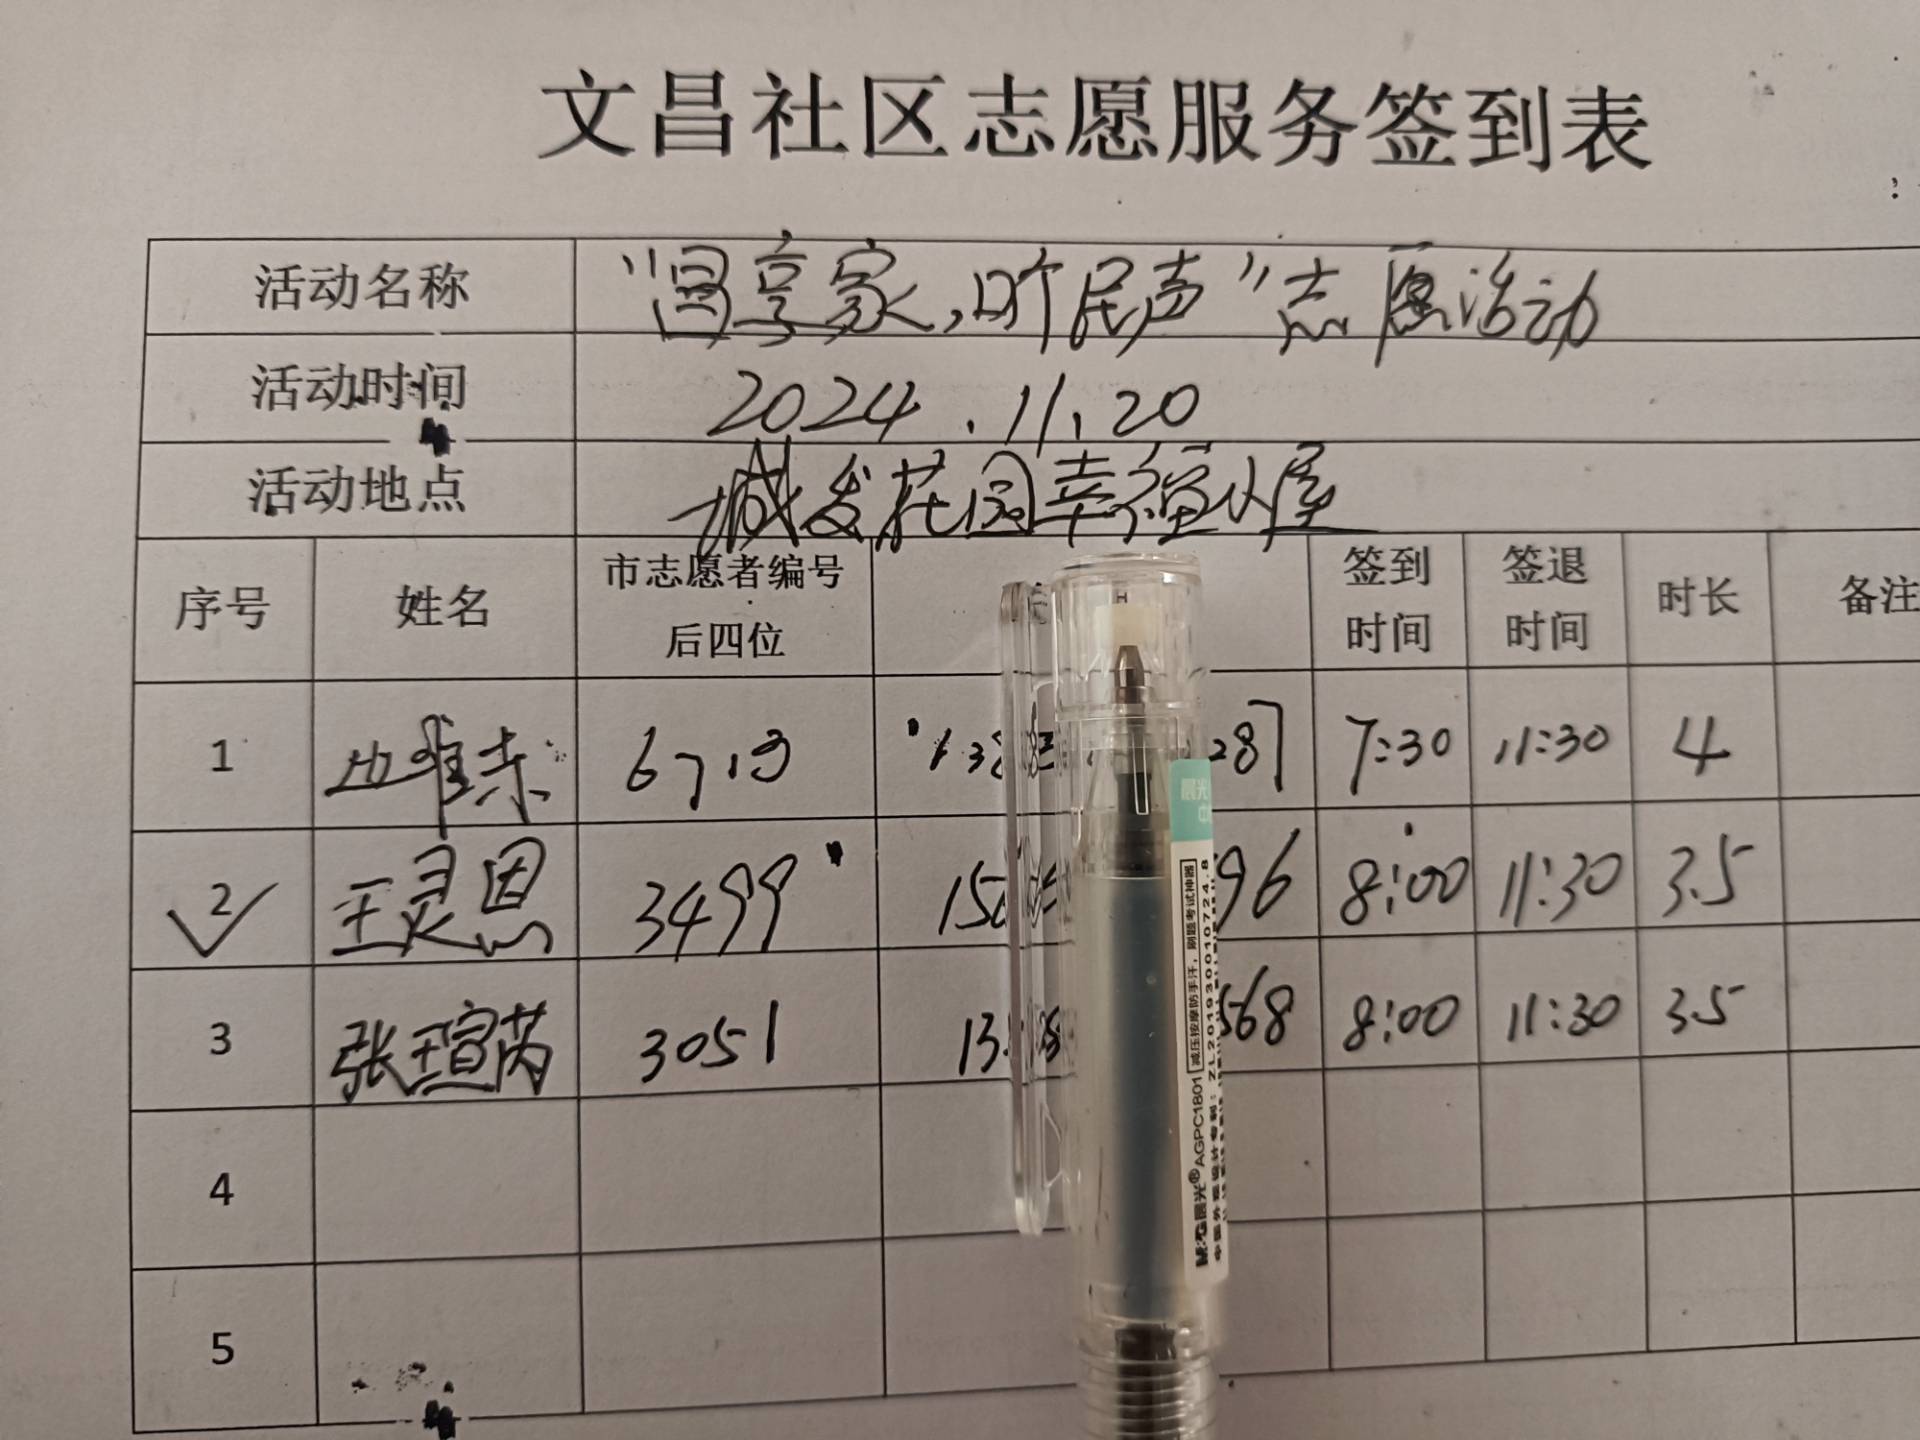 文昌社区志愿服务签到表
活动名称 享家,听民声”志愿活动
活动时间 2024.11.20
活动地点 城发花园幸福小屋
序号 姓名 市志愿者编号后四位 签到时间 签退时间 时长 备注
1 6713 287 7:30 11:30 4
2 王灵恩 3499 96 8:00 11:30 3.5
3 张瑄芮 3051 13 568 8:00 11:30 3.5
4
5
M&G晨光® AGPC1801 减压按摩防手汗，刷题考试神器